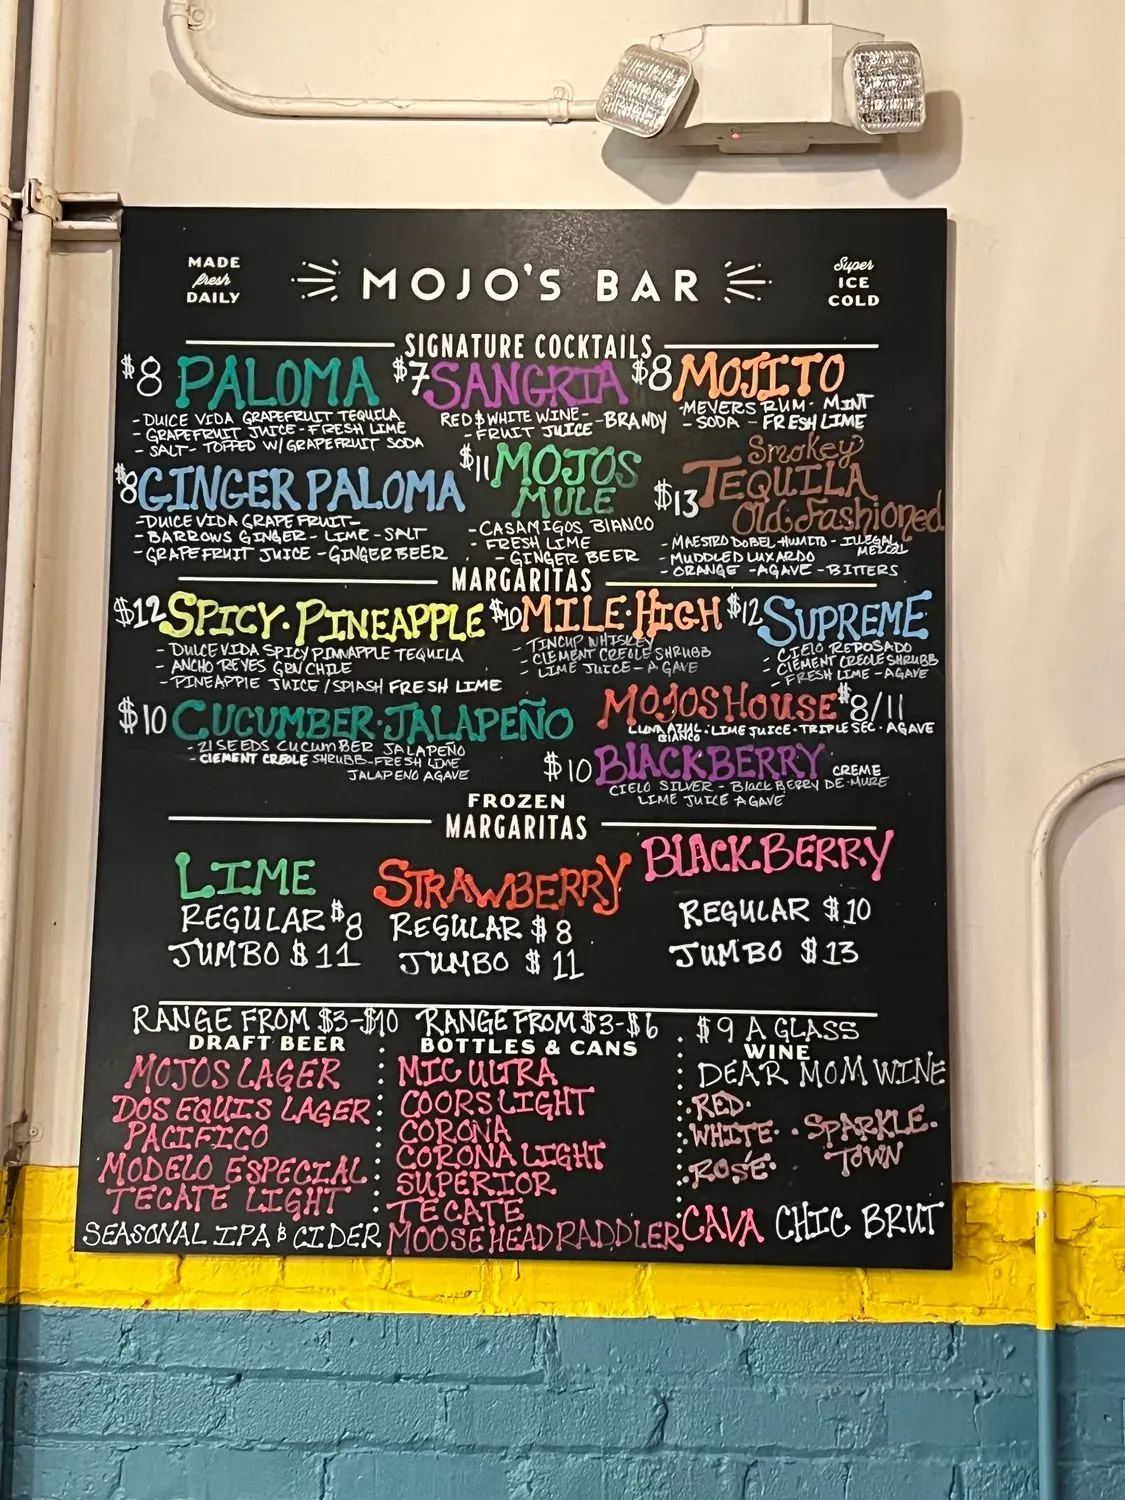 MADE
fresh
DAILY
MOJO'S BAR
Super
ICE
COLD
SIGNATURE COCKTAILS
$8 PALOMA
- DULCE VIDA GRAPEFRUIT TEQUILA
- GRAPEFRUIT JUICE - FRESH LIME
- SALT - TOPPED W/ GRAPEFRUIT SODA
$7 SANGRIA
RED $ WHITE WINE - - BRANDY
- FRUIT JUICE
$8 MOJITO
- MEYERS RUM - MINT
- SODA - FRESH LIME
$8 GINGER PALOMA
- DULCE VIDA GRAPEFRUIT -
- BARROWS GINGER - LIME - SALT
- GRAPEFRUIT JUICE - GINGER BEER
$11 MOJOS
MULE
- CASAMIGOS BIANCO
- FRESH LIME
- GINGER BEER
Smokey
$13 TEQUILA
Old Fashioned
- MAESTRO DOBEL HUMITO - ILLEGAL
MEZCAL
- MUDDLED LUXARDO
- ORANGE - AGAVE - BITTERS
MARGARITAS
$12 SPICY · PINEAPPLE
- DULCE VIDA SPICY PINNAPPLE TEQUILA
- ANCHO REYES GRN CHILE
- PINEAPPLE JUICE / SPLASH FRESH LIME
$10 MILE · HIGH
- TINCUP WHISKEY
- CLEMENT CREOLE SHRUBB
- LIME JUICE - AGAVE
$12 SUPREME
- CIELO REPOSADO
- CLEMENT CREOLE SHRUBB
- FRESH LIME - AGAVE
$10 CUCUMBER · JALAPEÑO
- 21 SEEDS CUCUMBER JALAPEÑO
- CLEMENT CREOLE SHRUBB - FRESH LIME
JALAPENO AGAVE
MOJOS HOUSE $8/11
LUNA AZUL · LIME JUICE · TRIPLE SEC · AGAVE
BLANCO
$10 BLACKBERRY CREME
CIELO SILVER - BLACKBERRY DE-MURE
LIME JUICE AGAVE
FROZEN
MARGARITAS
LIME
REGULAR $8
JUMBO $11
STRAWBERRY
REGULAR $8
JUMBO $11
BLACKBERRY
REGULAR $10
JUMBO $13
RANGE FROM $3-$10
DRAFT BEER
MOJOS LAGER
DOS EQUIS LAGER
PACIFICO
MODELO ESPECIAL
TECATE LIGHT
SEASONAL IPA & CIDER
RANGE FROM $3-$6
BOTTLES & CANS
MIC ULTRA
COORS LIGHT
CORONA
CORONA LIGHT
SUPERIOR
TECATE
MOOSEHEAD RADDLER
$9 A GLASS
WINE
DEAR MOM WINE
· RED ·
· WHITE ·
· ROSÉ ·
· SPARKLE ·
TOWN
CAVA CHIC BRUT